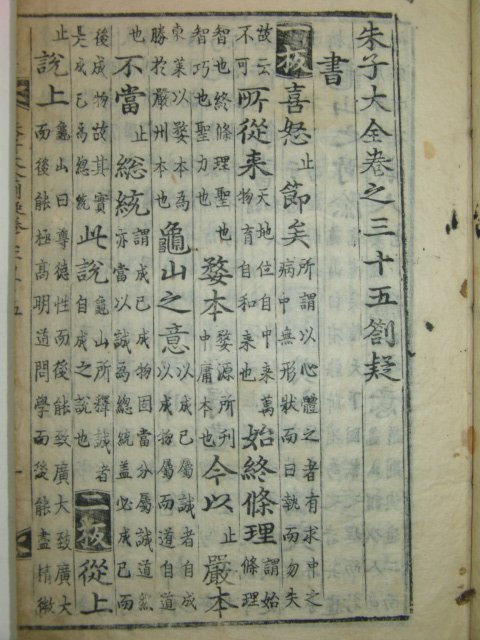 朱子大全卷之三十五劄疑
書
一板 喜怒止節矣所謂以心體之者有求中之病中無形狀而曰執而勿失
故云不可所從来天地位自中来萬物育自和来也始終條理謂始條理
智也終條理聖也智巧也聖力也婺本婺源所刊中庸本也今以止嚴本
東萊以婺本為勝於嚴州本也龜山之意以成已屬誠者自成以成物屬而道自道
也不當止総統謂成已成物因當分屬誠道然亦當以誠為總統盖必成已而
後成物故其實是成已為總統此說龜山所釋誠者自成之說也二板 從上
止說上龜山曰尊德性而後能致廣大致廣大而後能極高明道問學而後能盡精微